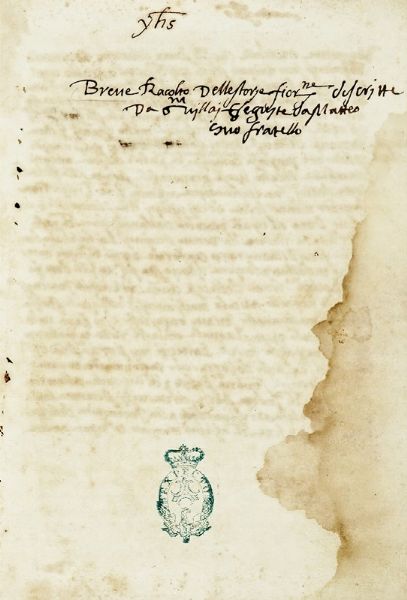 yhs
Breve Racolto Delle storie fior.ne discritte
Da G.ni Villaj e seguite da Matteo
suo fratello